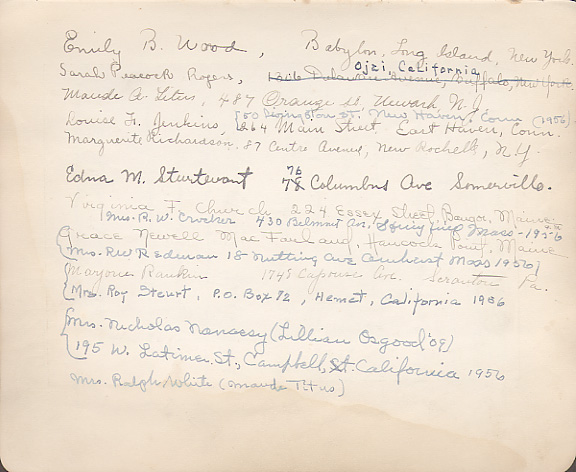 Emily B. Wood, Babylon, Long Island, New York.
Ojai, California
Sarah Peacock Rogers, 1306 Delaware Avenue, Buffalo, New York.
Maude A. 487 Orange St, Newark N.J.
(50 Livingston St. New Haven, Conn (1956)
Louise F. Jenkins, 264 Main Street, East Haven, Conn.
Marguerite Richardson. 87 Centre Avenue, New Rochelle, N.Y.
76
Edna M. Sturtevant 78 Columbus Ave Somerville.
Virginia F. Church 224 Essex Street, Bangor, Maine
(Mrs. R. W. Crocker 430 Belmont Av, Springfield Mass - 1956
Grace Newell MacFarland, Hancock Point, Maine
(Mrs. RW Redman 18 Nutting Ave Amherst Mass 1956)
Marjorie Rankin 1745 Capouse Ave. Scranton Pa.
(Mrs. Roy P.O. Box 72, Hemet, California 1956
Mrs. Nicholas (Lillian Osgood '09)
195 W. Latimer St., Campbell, California 1956
Mrs. Ralph White (Maude Titus)